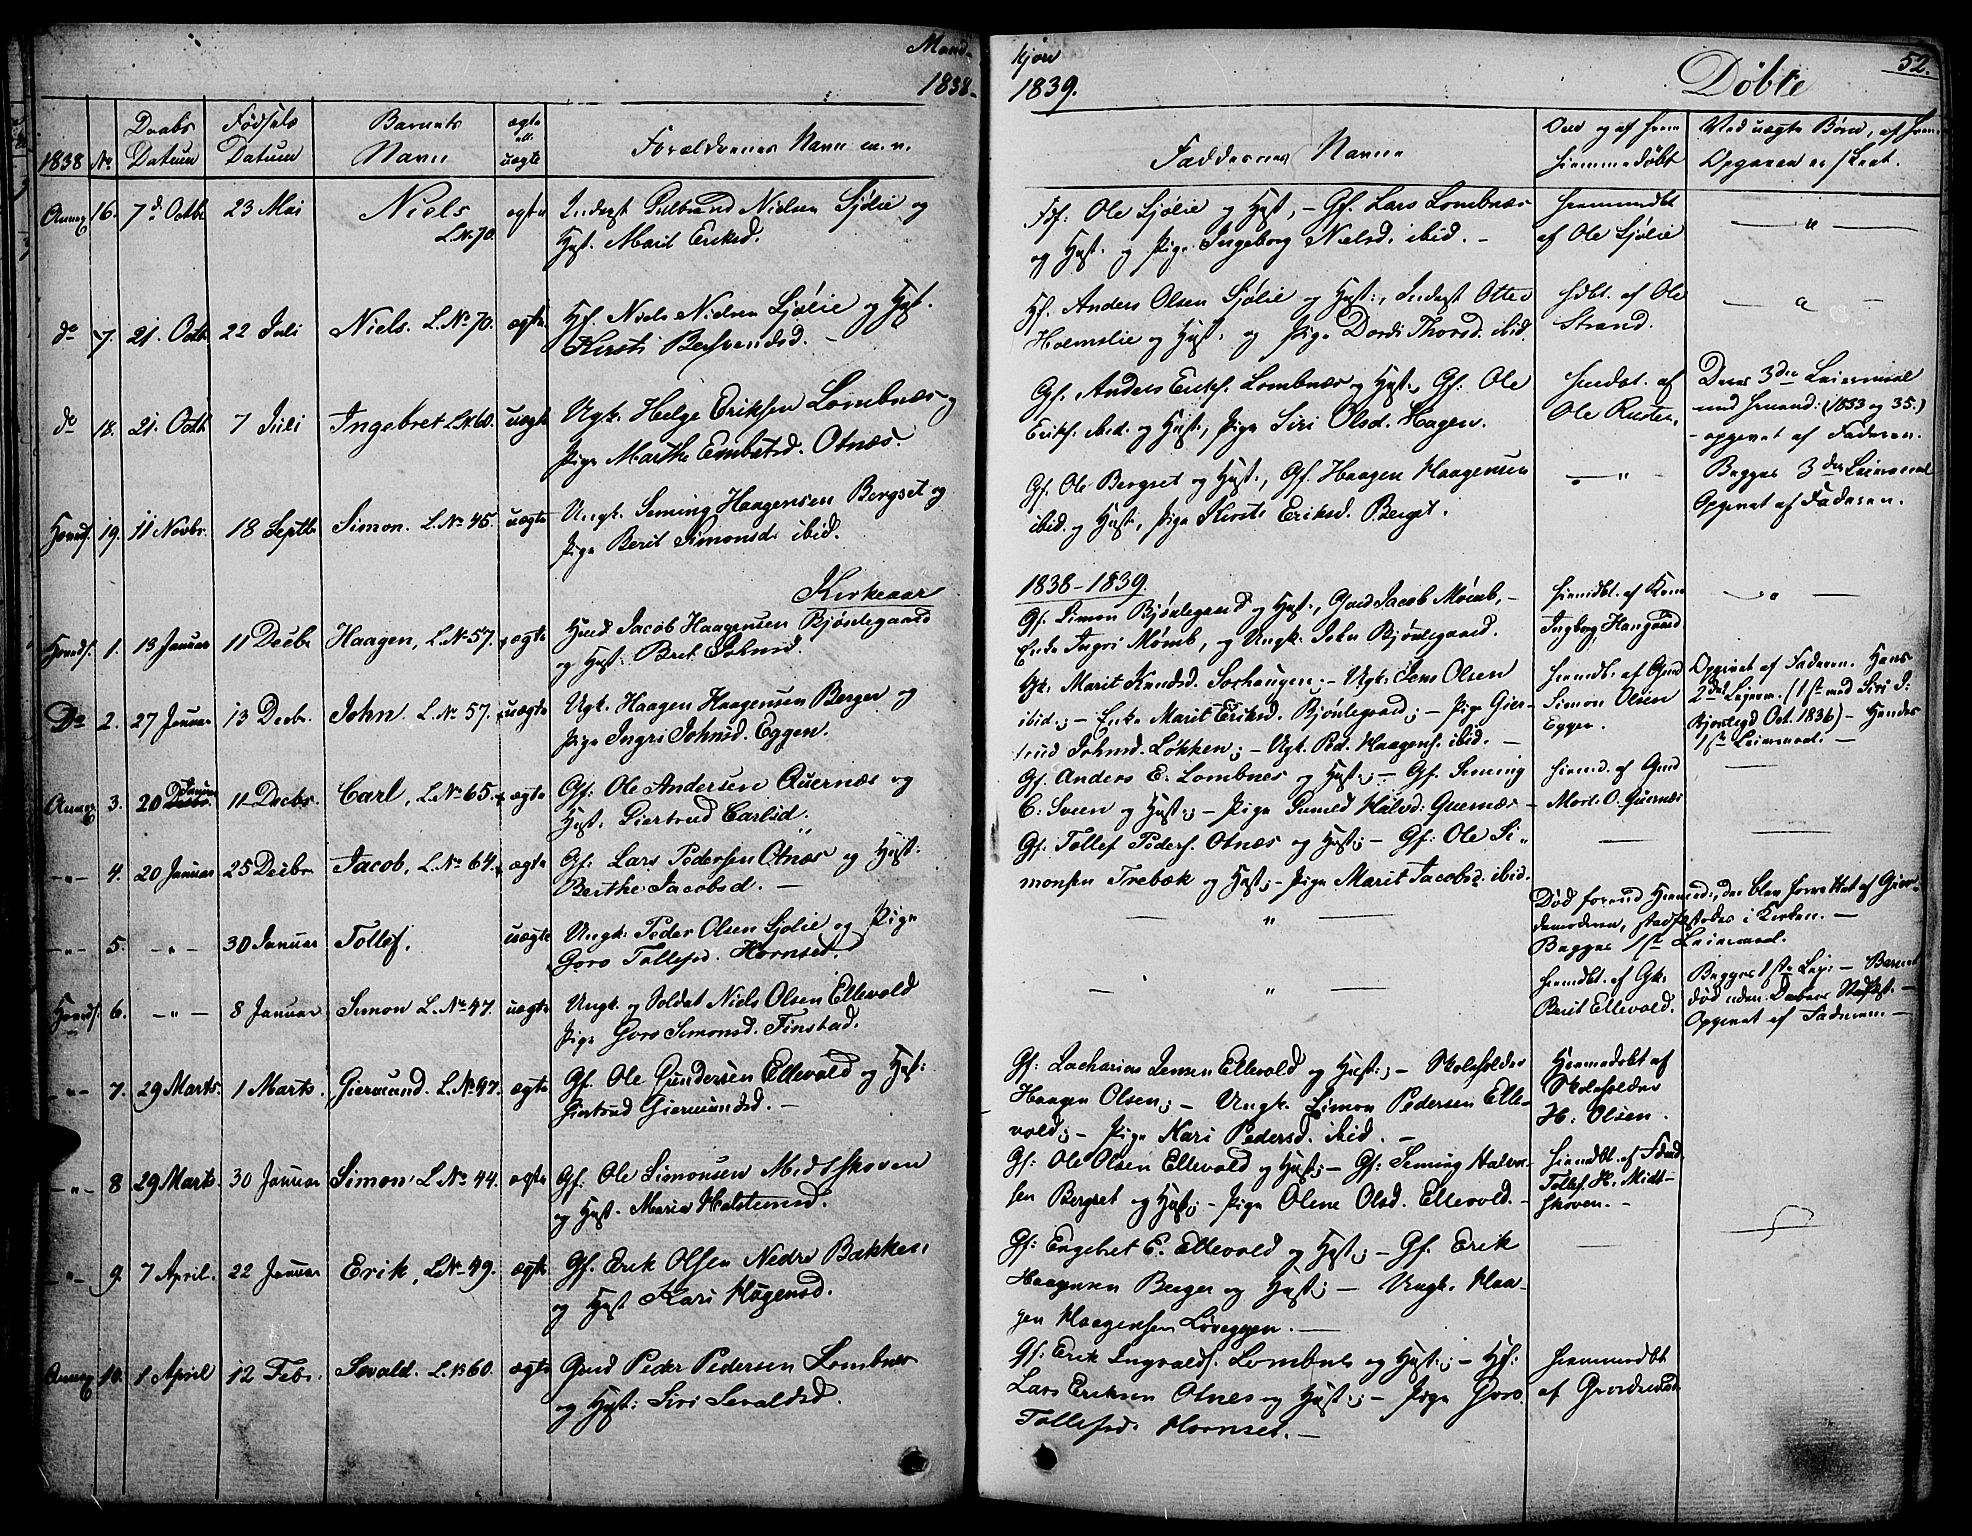 Mand-
1838-
1838 No Daabs Datum Fødsels Datum Barnets Navn ægte ell. uægte Forældrenes Navn m.v.
16. 7d Octbr 23 Mai Niels L.No.70. ægte Inderst Gulbrand Nielsen Sjølie og
Hust. Marit Eriksd.
do 7. 21. Octb 22 Juli Niels. L.No 70. ægte Hf. Niels Nielsen Sjølie og Hust.
Kersti Bersvendsd. -
do 18. 21. Octb 7 Juli Ingebret L.No.60. uægte Ungk. Helge Eriksen Lombnæs og
Pige Marthe Embretsd. Otnæs.
19. 11 Novbr. 18 Septb Simon. L.No 45. uægte Ungk. Seming Haagensen Bergset og
Pige Berit Simonsd. ibid.
Kirkeaar
1. 13 Januar 11 Decbr Haagen, L.No.57. ægte Gmd Jacob Haagensen Bjønlegaard
og Hust. Beret
Do 2. 27 Januar 13 Decbr. John. L.No 57. uægte Ungk. Haagen Haagensen Berger og
Pige Ingri Johnsd. Eggen.
3. 20 Januar 11 Decbr. Carl, L.No.65. ægte Gf: Ole Andersen Quernæs og
Hust. Giertrud Carlsd.
-"- 4. 20 Januar 25 Decbr Jacob, L.No 64. ægte Gf. Lars Pedersen Otnæs og Hust:
Berthe Jacobsd. -
-"- 5. -"- 30 Januar Tollef. uægte Ungk: Peder Olsen Sjølie og Pige
Goro Tollefsd. Hornset.
6. -"- 8 Januar Simon L.No 47. uægte Ungk. og Soldat Niels Olsen Ellevold
Pige Goro Simonsd. Finstad.
-"- 7. 29 Marts. 1 Marts. Giermund. L.No 97. ægte Gf. Ole Gundersen Ellevold og Hust:
Giertrud Giermundsd. -
-"- 8 29 Marts. 30 Januar Simon L.No 44. ægte Gf. Ole Simonsen Midtskoven
og Hust. Maria Halstensd.
-"- 9. 7 April. 22 Januar Erik, L.No 49. ægte Gf. Erik Olsen Nedre Bakken
og Hust Kari Hagensd.
10. 1 April 12 Febr. Sevald. L.No 60. ægte Gmd Peder Pedersen Lombnæs
og Hust: Siri Sevaldsd.
Kjøn
1839.
Døbte
52.
Faddernes Navne
Om og af hvem hiemmedøbt
Ved uægte Børn, af hvem Opgaven er skeet.
Ole Sjølie og Hust, - Gf. Lars Lombnæs
og Hust. og Pige Ingeborg Nielsd. ibid. -
af Ole Sjølie
Hf. Anders Olsen Sjølie og Hust:, Inderst Otter
Holmslie og Hust. og Pige Dordi Thorsd. ibid.
hdbt. af Ole
Strand.
Gf. Anders Eriks. Lombnæs og Hust., Gf: Ole
Eriks. ibid. og Hust., Pige Siri Olsd. Hagen.
af
Ole Rusten.
Deres 3die Leiermaal
(1833 og 35.)
- opgivet af Faderen.
Gf: Ole Bergset og Hust:, Gf. Haagen Haagensen
ibid. og Hust., Pige Kersti Eriksd. Berget.
Begges 3die Leiermaal
Opgivet af Faderen.
1838-1839.
Gf. Simon Bjønlegaard og Hust., Gmd Jacob Momb, -
Enke Ingri Momb, og Ungk. John Bjønlegaard.
hiemdbt. af Kone
Ingborg Haugaard
Gk. Marit Knudsd. Sorhaugen - Ungk: Jens Olsen
ibid; - Enke Marit Eriksd. Bjønlegaard; - Pige Gier-
trud Johnsd. Løkken; - Ungk. Ped. Haagens. ibid. -
hiemdb. af Gmd
Simon Olsen
Eggen.
Opgivet af Faderen. Hans
2det Leierm. (1ste med Siri J:
Oct. 1836) - Hendes
1ste Leiermaal. -
Gf. Anders E. Lombnes og Hust; - Gf. Seming
C. Sveen og Hust; - Pige Halvd. Quernæs -
hiemd. af Gmd
O. Quernæs
Gf. Tollef Peders. Otnæs og Hust; - Gf: Ole Si-
monsen Trebæk og Hust; - Pige Marit Jacobsd. ibid.
Død forend der blev forrettet af Gior-
demoderen, i Kirken. -
Begges 1ste Leiermaal.
hiemdbt. af Gk.
Berit Ellevold.
Begges 1ste Leier: - Barnet
død uden Daabens Stadfæst. -
Opgivet af Faderen. -
Gf: Zacharias Jensen Ellevold og Hust; - Skoleholder
Haagen Olsen; - Ungk. Simon Pedersen Elle-
vold; - Pige Kari Pedersd. ibid. -
Hiemmedøbt af
Skoleholder
H. Olsen.
Gf: Ole Olsen Ellevold og Hust; - Gf: Seming Halvor-
sen Bergset og Hust; - Pige Olene Olsd. Ellevold. -
hiemdbt. af
Tollef H. Midt-
skoven. -
Gf: Engebret E. Ellevold og Hust; - Gf. Erik
Haagensen Berger og Hust; - Ungk. Haa-
gen Haagensen Løveggen. -
Gf: Erik Ingvalds. Lombnes og Hust; - Hf:
Lars Eriksen Otnes og Hust; - Pige Goro
Tollefsd. Hornset. -
hiemmedbt.
af